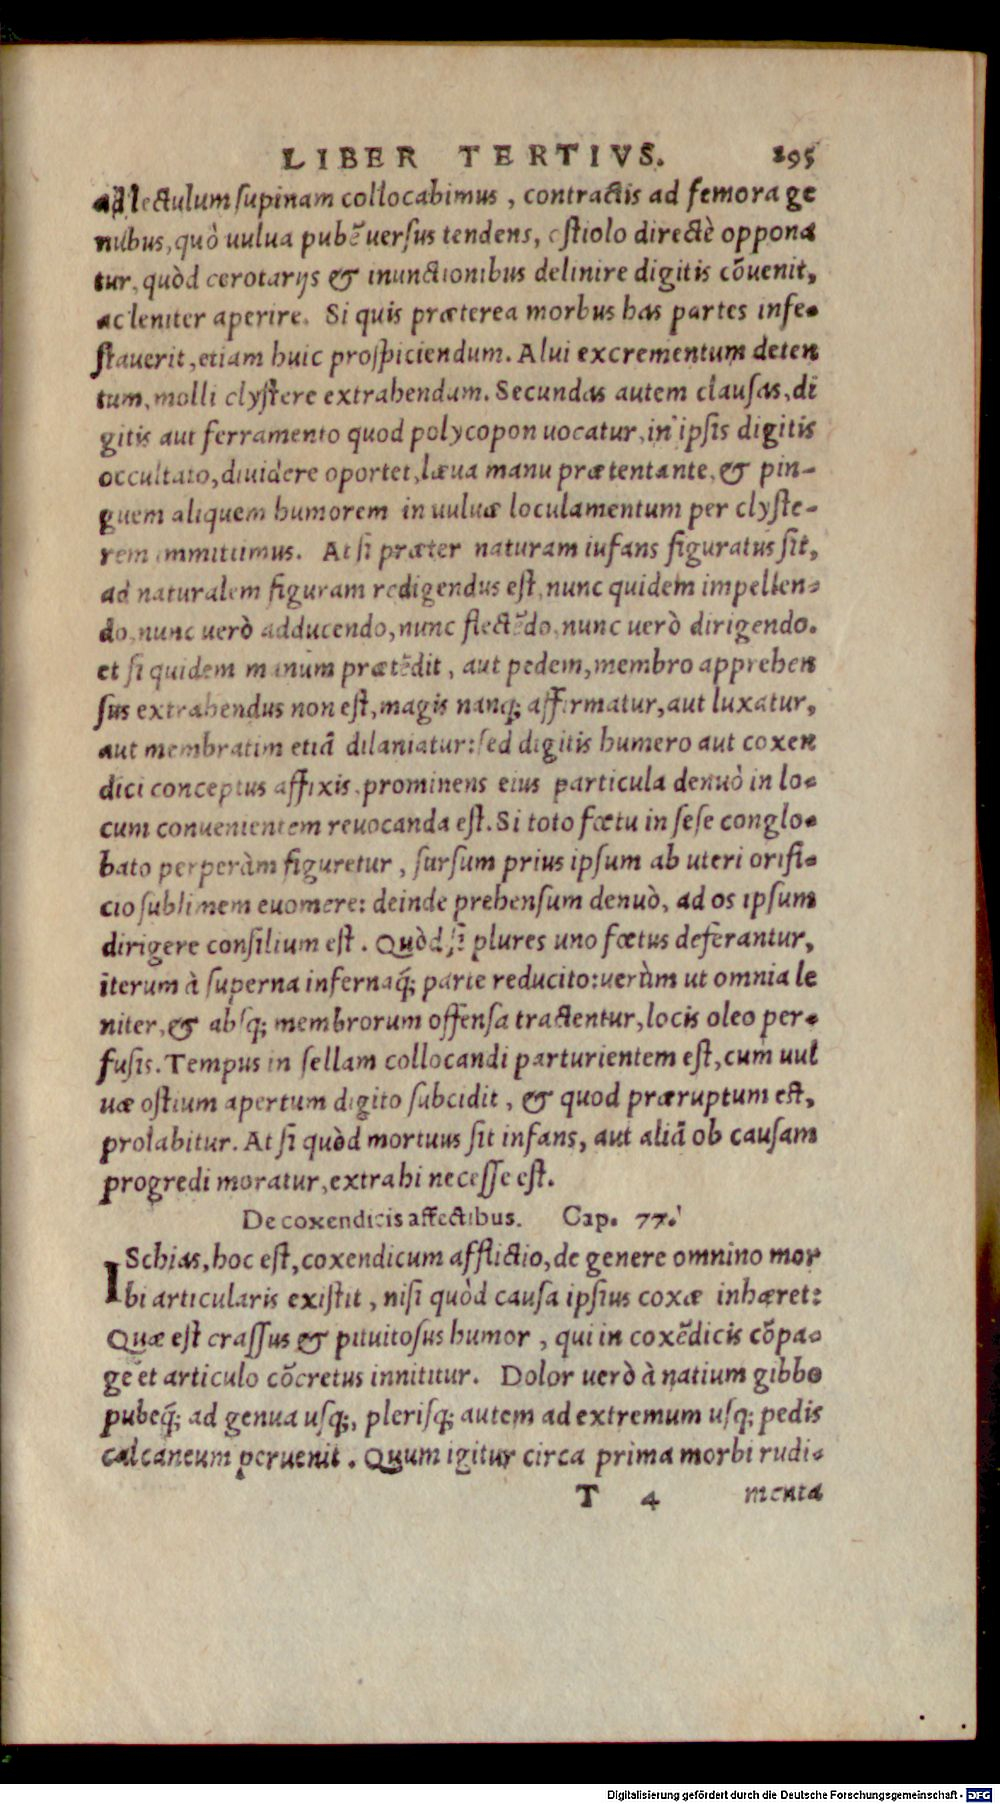 LIBER TERTIVS. 295
ad lectulum supinam collocabimus, contractis ad femora ge
nibus, quò uulua pubē uersus tendens, ostiolo directè oppona
tur, quòd cerotarijs & inunctionibus delinire digitis cōuenit,
ac leniter aperire. Si quis præterea morbus has partes infe-
stauerit, etiam huic prospiciendum. Alui excrementum deten
tum, molli clystere extrahendum. Secundas autem clausas, di
gitis aut ferramento quod polycopon uocatur, in ipsis digitis
occultato, diuidere oportet, læua manu prætentante, & pin-
guem aliquem humorem in uuluæ loculamentum per clyste-
rem immittimus. At si præter naturam iufans figuratus sit,
ad naturalem figuram redigendus est, nunc quidem impellen-
do, nunc uerò adducendo, nunc flectēdo, nunc uerò dirigendo.
et si quidem manum prætēdit, aut pedem, membro apprehen
sus extrahendus non est, magis nanq; affirmatur, aut luxatur,
aut membratim etiā dilaniatur: sed digitis humero aut coxen
dici conceptus affixis, prominens eius particula denuò in lo-
cum conuenientem reuocanda est. Si toto fœtu in sese conglo-
bato perperàm figuretur, sursum prius ipsum ab uteri orifi-
cio sublimem euomere: deinde prehensum denuò, ad os ipsum
dirigere consilium est. Quòd si plures uno fœtus deferantur,
iterum à superna infernaq́; parte reducito: uerùm ut omnia le
niter, & absq; membrorum offensa tractentur, locis oleo per-
fusis. Tempus in sellam collocandi parturientem est, cum uul
uæ ostium apertum digito subcidit, & quod præruptum est,
prolabitur. At si quòd mortuus sit infans, aut aliā ob causam
progredi moratur, extrahi necesse est.
De coxendicis affectibus. Cap. 77.
ISchias, hoc est, coxendicum afflictio, de genere omnino mor
bi articularis existit, nisi quòd causa ipsius coxæ inhæret:
Quæ est crassus & pituitosus humor, qui in coxēdicis cōpa-
ge et articulo cōcretus innititur. Dolor uerò à natium gibbo
pubeq́; ad genua usq;, plerisq; autem ad extremum usq; pedis
calcaneum peruenit. Quum igitur circa prima morbi rudi-
T 4 menta
Digitalisierung gefördert durch die Deutsche Forschungsgemeinschaft - DFG